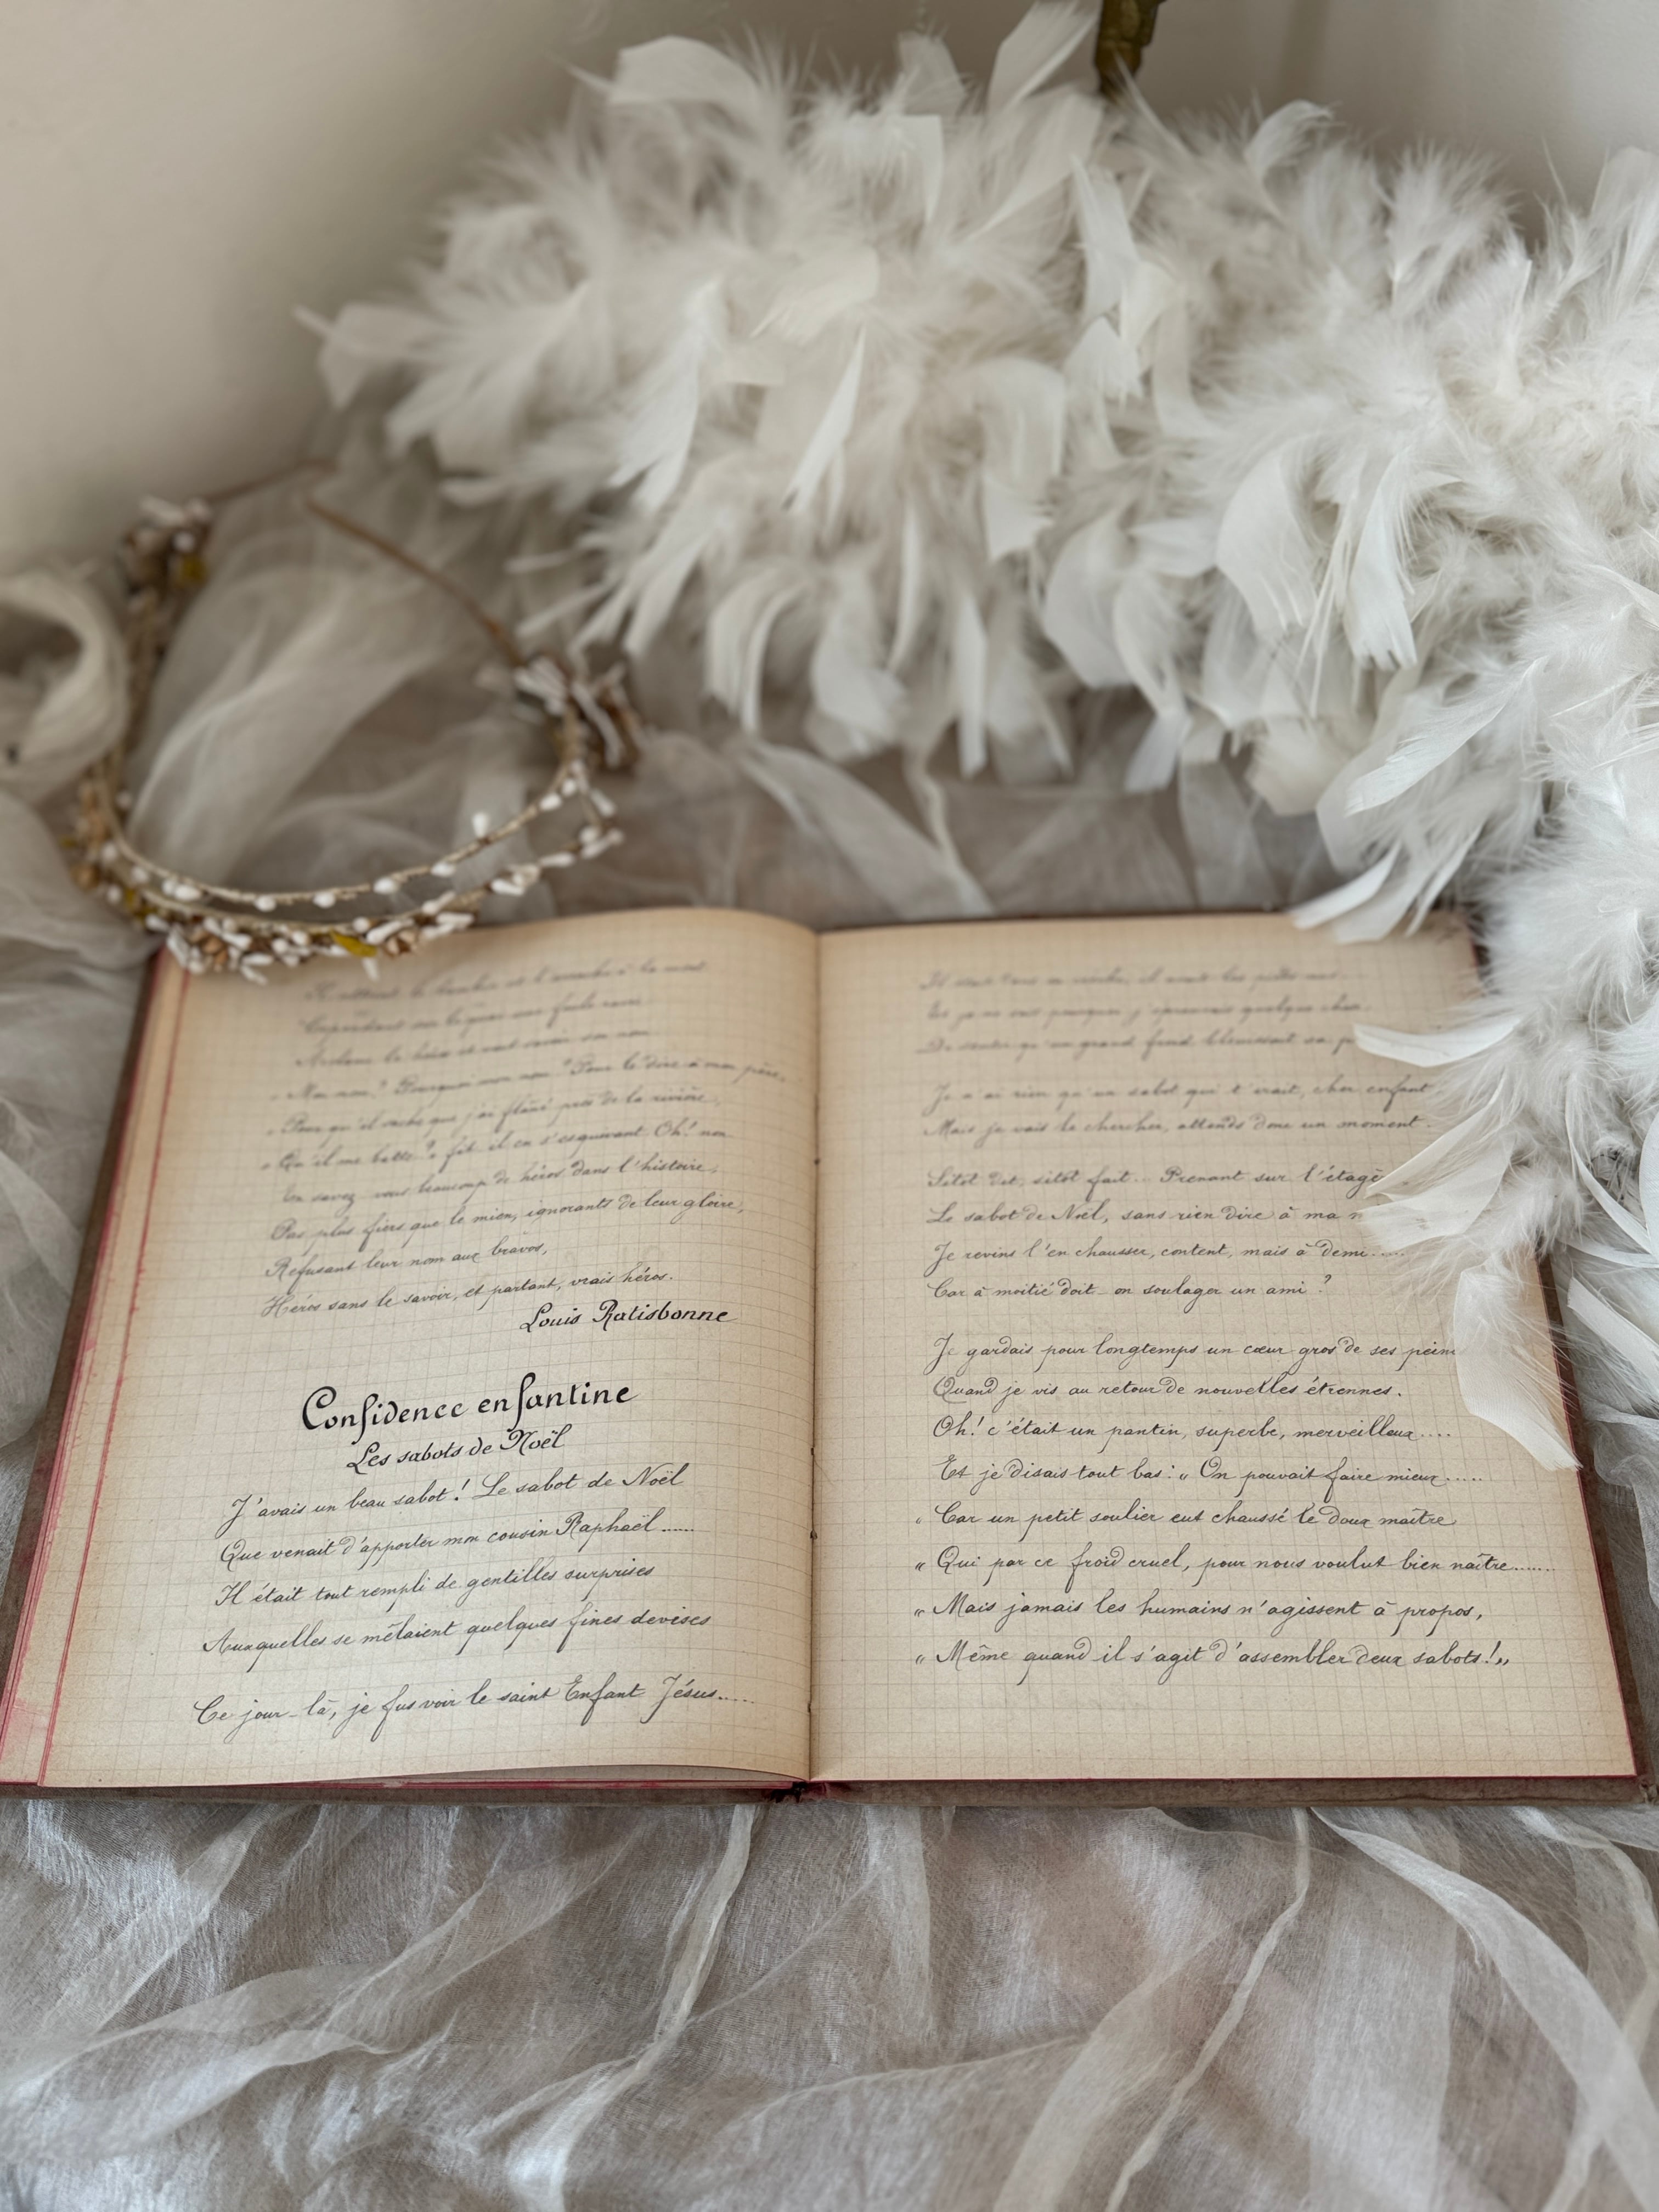 Cependant sur le quai une foule
Acclame le héros et veut savoir son nom
" Mon nom? Pourquoi mon nom? Pour le dire à mon père,
" Pour qu'il sache que j'ai flâné près de la rivière,
" Qu'il me batte? " fit-il en s'esquivant. Oh! non
En savez-vous beaucoup de héros dans l'histoire,
Pas plus fiers que le mien, ignorants de leur gloire,
Refusant leur nom aux bravos,
Héros sans le savoir, et partant, vrais héros.
Louis Ratisbonne
Confidence enfantine
Les sabots de Noël
J'avais un beau sabot! Le sabot de Noël
Que venait d'apporter mon cousin Raphaël......
Il était tout rempli de gentilles surprises
Auxquelles se mêlaient quelques fines devises
Ce jour-là, je fus voir le saint Enfant Jésus.....
Il était dans sa crèche, il avait les pieds nus
Et je ne sais pourquoi j'éprouvais quelque chose
De sentir qu'un grand froid bleuissait sa
Je n'ai rien qu'un sabot qui t'irait, cher enfant
Mais je vais le chercher, attends donc un moment.
Sitôt dit, sitôt fait... Prenant sur l'étagè
Le sabot de Noël, sans rien dire à ma
Je revins l'en chausser, content, mais à demi.....
Car à moitié doit-on soulager un ami?
Je gardais pour longtemps un cœur gros de ses pein
Quand je vis au retour de nouvelles étrennes.
Oh! c'était un pantin, superbe, merveilleux....
Et je disais tout bas: " On pouvait faire mieux.....
" Car un petit soulier eut chaussé le doux maître
" Qui par ce froid cruel, pour nous voulut bien naître.......
" Mais jamais les humains n'agissent à propos,
" Même quand il s'agit d'assembler deux sabots!"